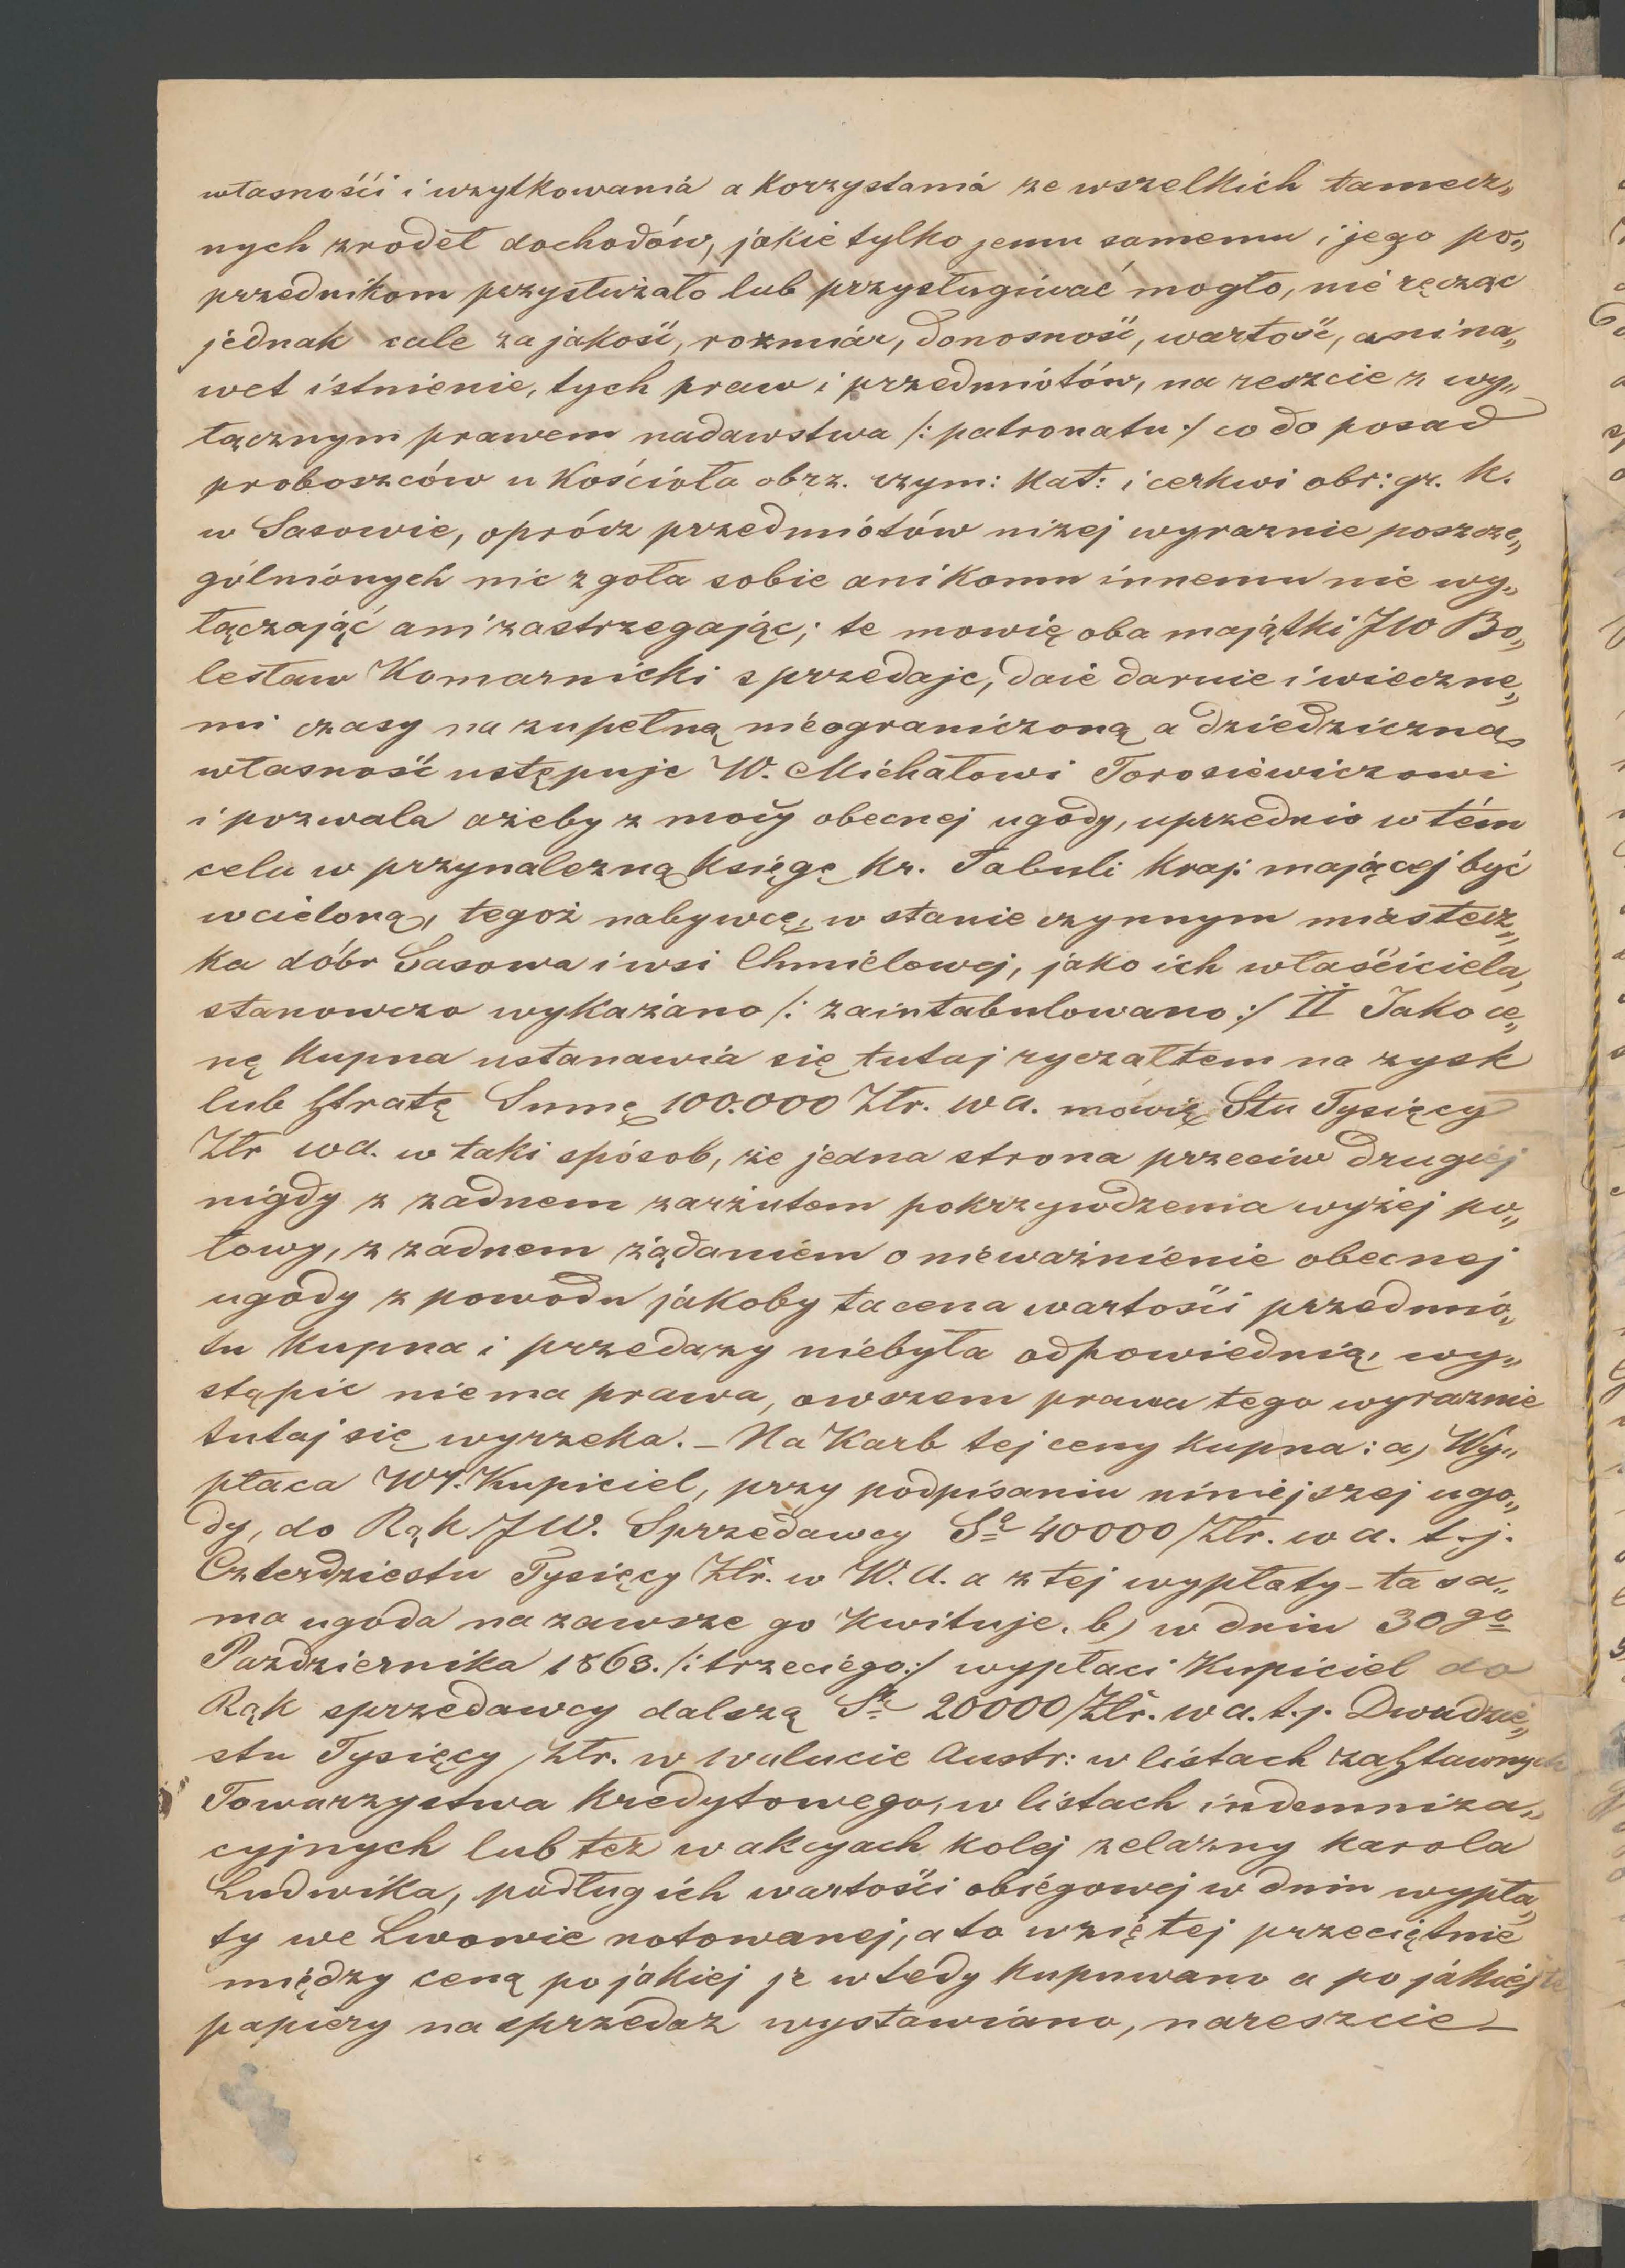 własnośći i wzytkowaniá a korzystaniá ze wszelkich tamecz„
nych zrodeł dochodów, jakie tylko jemu samemu i jego po„
przednikom przysłużało lub przysługiwać mogło, nie ręcząc
jednak cale za jakość, rozmiár, donosność, wartość, ani na„
wet istnienie, tych praw i przedmiótów, na reszcie z wy„
łącznym prawem nadawstwa /: patronatu :/ co do posad
proboszców u Kościoła obrz. rzym: Kat: i cerkwi obr: gr. K.
w Sasowie, oprócz przedmiótów nizej wyraznie poszcze„
gólniónych nic zgoła sobie ani Komu innemu nie wy„
łączając ani zastrzegając; te mowię oba majątki JW Bo„
lesław Komarnicki sprzedaje, daie daruie i wieczne„
mi czasy na zupełną nieograniczoną a dziedziczną
własność ustępuje W. Michałowi Torosiewiczowi
i pozwala ażeby z mocy obecnej ugody, uprzednio w tém
celu w przynalezną Księgę Kr. Tabuli Kraj: mającej być
wcieloną, tegoż nabywcę, w stanie czynnym miástecz„
ka dóbr Sasowa i wsi Chmiélowej, jako ich właśćiciela,
stanowczo wykazano /: zaintabulowano :/ II Jako ce„
nę Kupna ustanawia się tutaj ryczałtem na zysk
lub stratę Sumę 100.000 Złr. wa. mówię Stu Tysięcy
Złr wa. w taki spósob, że jedna strona przeciw drugiéj
nigdy z zadnem zarzutem pokrzywdzenia wyżej po„
łowy, z zadnem żądaniém o nieważnienie obecnej
ugody z powodu jakoby ta cena wartośći przedmió„
tu Kupna i przedazy niebyła odpowiednią, wy„
stąpić niema prawa, owszem prawa tego wyraznie
tutaj się wyrzeka. – Na Karb tej ceny Kupna: a) Wy„
płaca Wy. Kupiciel, przy podpisaniu niniéjszej ugo„
dy, do Rąk JW. Sprzedawcy Sa 40000/Złr. wa. t.j.
Czterdziestu Tysięcy Złr. w W. A. a z tej wypłaty – ta sa„
ma ugoda na zawsze go Kwituje. b) w dniu 30go
Pazdziernika 1863. /: trzeciego :/ wypłaci Kupiciel do
Rąk sprzedawcy dalszą Sę 20000/Złr. wa. t.j. Dwudzie„
stu Tysięcy złr. w walucie Austr: w listach zastawnych
Towarzystwa Kredytowego, w listach indemniza„
cyjnych lub też w akcyach kolej zelazny Karola
Ludwika, podług ich wartośći obiégowej w dniu wypła„
ty we Lwowie notowanej, a to wziętej przeciętnie
między ceną po jakiej je wtedy kupuwano a po jakiéj te
papiéry na sprzedaz wystawiáno, nareszcie –